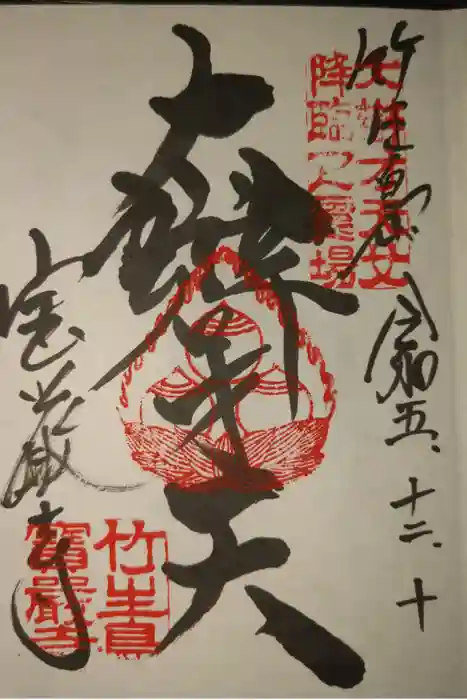 竹生島
令和五、十二、十
大辯才天
宝厳寺
大辯才天女
降臨之霊場
竹生島
寶嚴寺